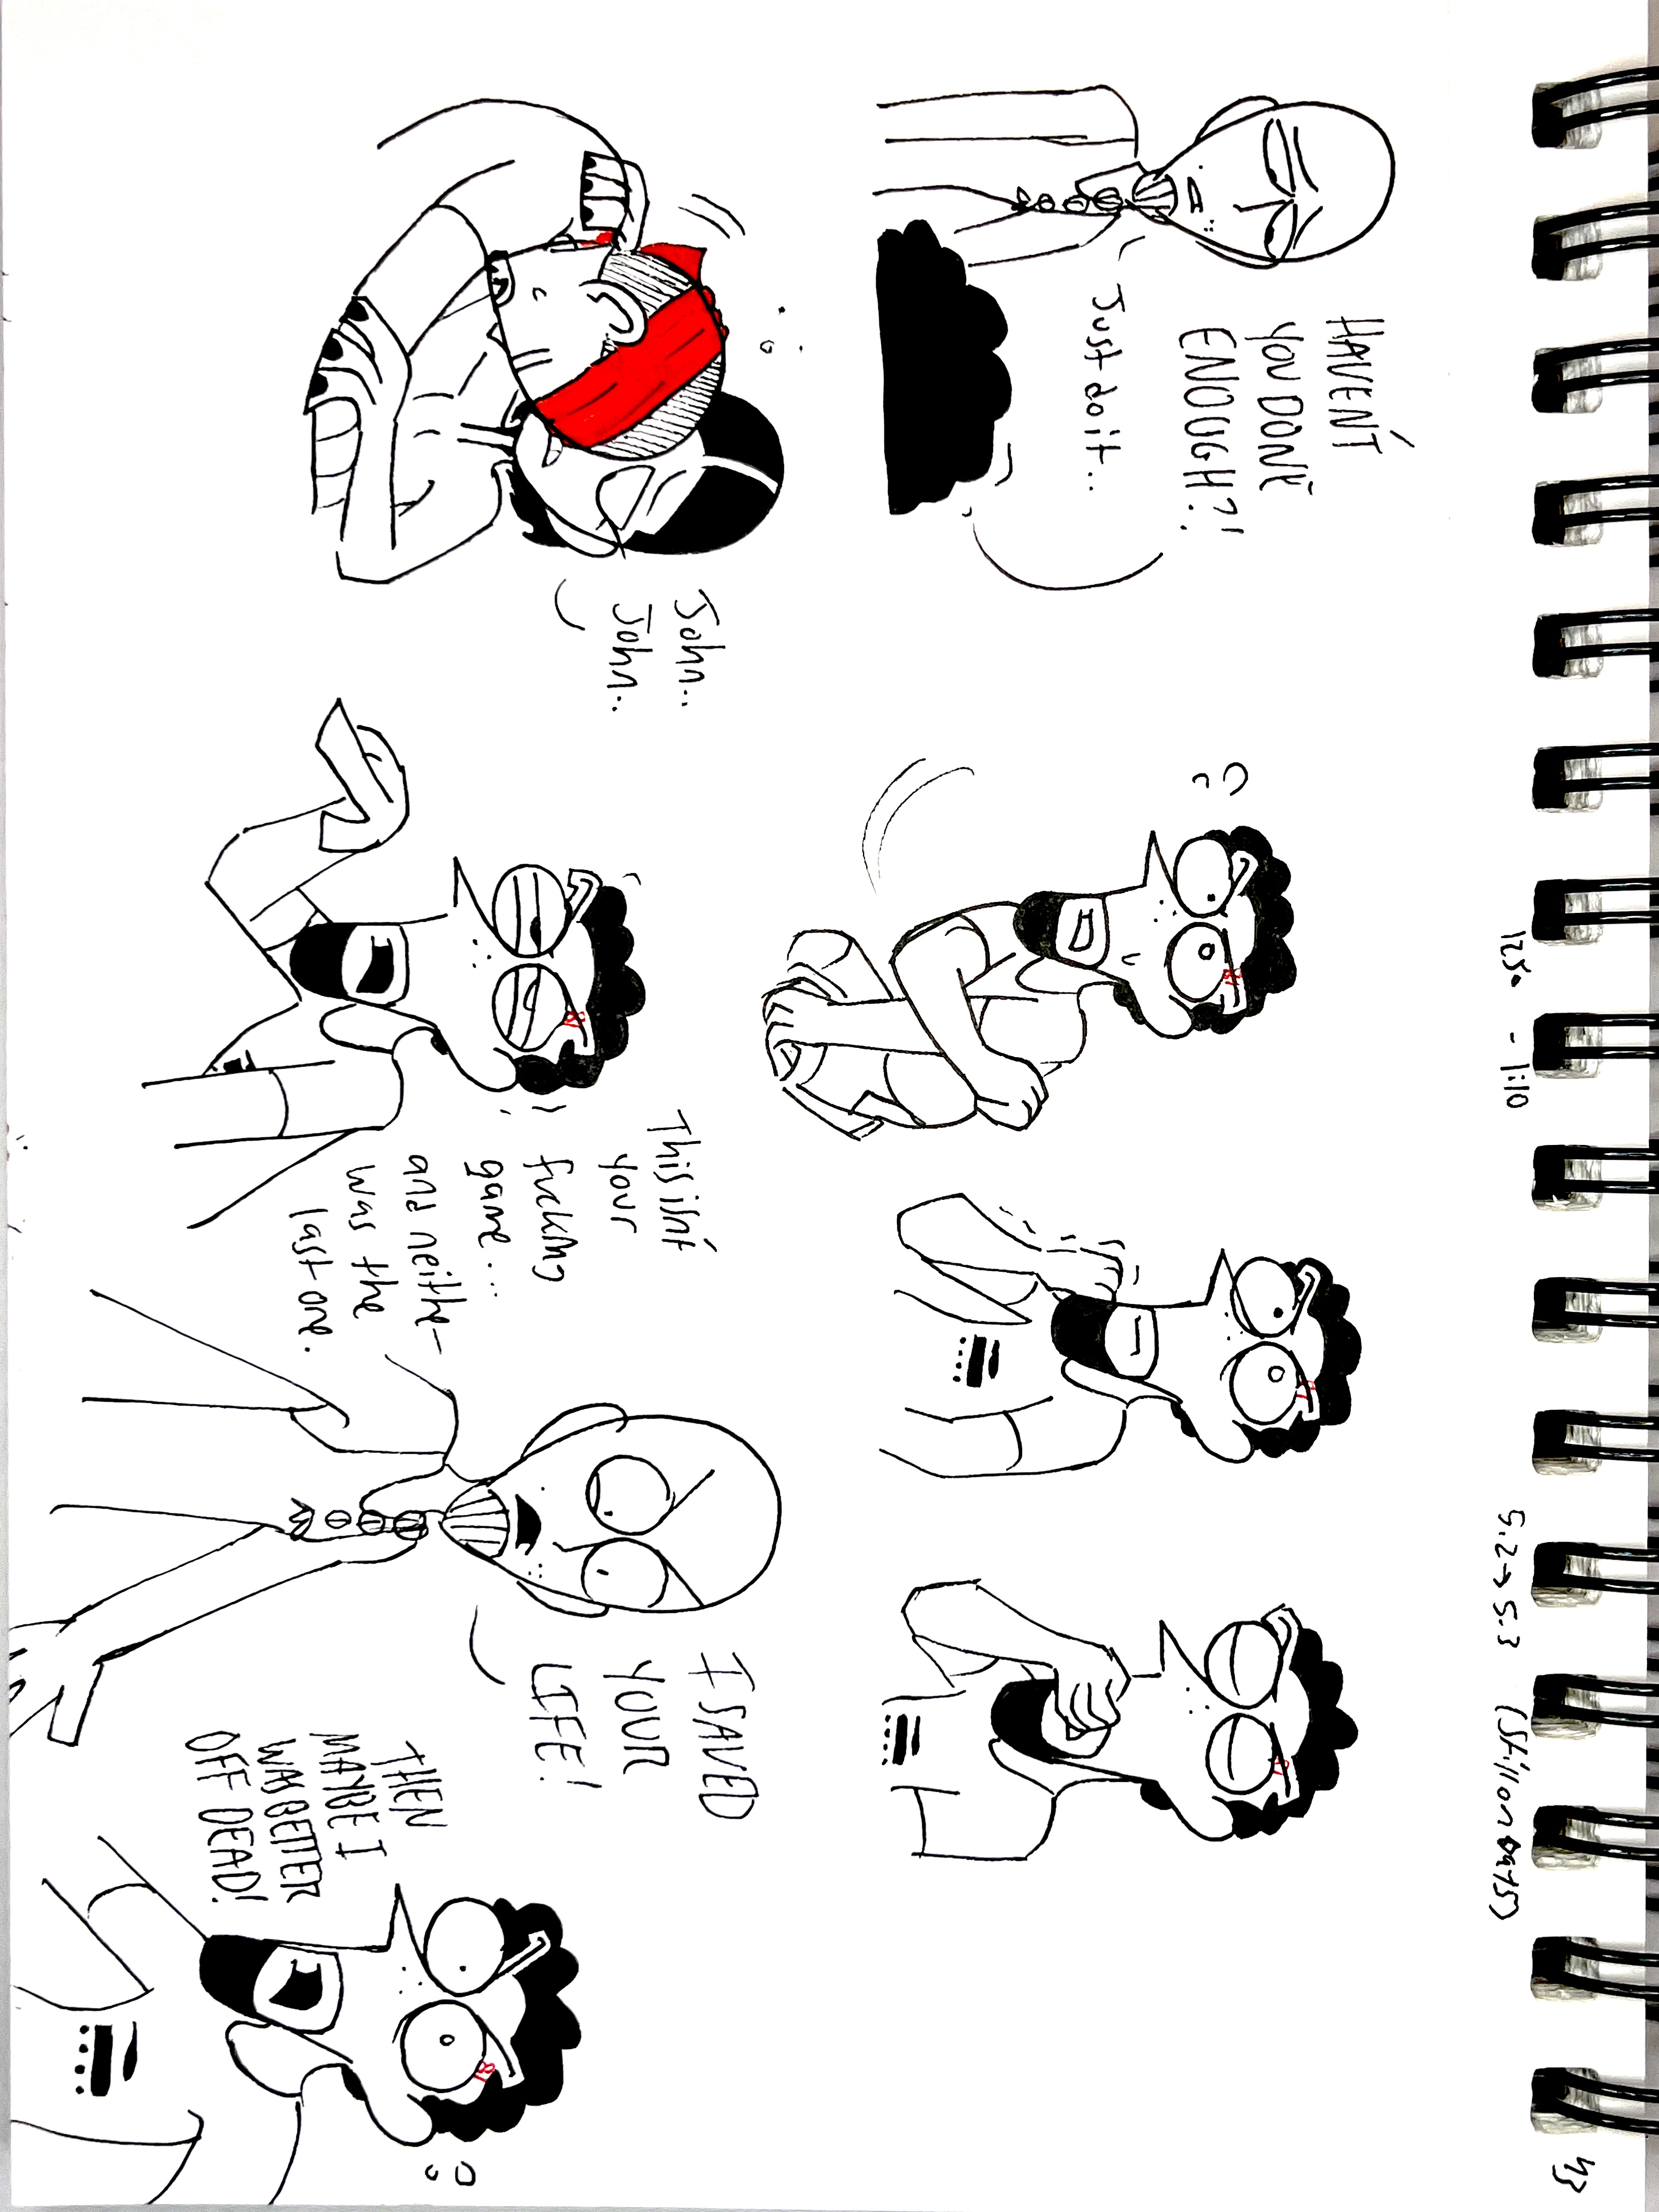 43
1250 - 1:10
5.2→5.3 (Still on Day 5)
HAVEN'T
YOU DONE
ENOUGH?!
Just do it..
81
81
81
John..
John..
This isn't
your
fucking
game...
and neithe—
was the
last one.
81
I SAVED
YOUR
LIFE!
THEN
MAYBE I
WAS BETTER
OFF DEAD!
81